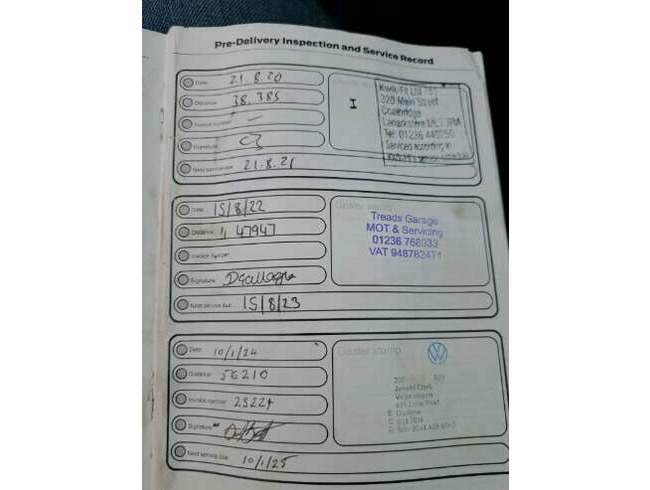 Pre-Delivery Inspection and Service Record
Date: 21.8.20
Distance: 38,385
Invoice number: -
Signature:
Next service due: 21.8.21
Kwik-Fit Ltd 751
320 Main Street
Coatbridge
Lanarkshire ML5 3RA
Tel: 01236 449250
Services according to
Date: 15/8/22
Distance: 47947
Invoice number:
Signature:
Next service due: 15/8/23
Dealer stamp
Treads Garage
MOT & Servicing
01236 768933
VAT 948782471
Date: 10/1/24
Distance: 56210
Invoice number: 23221
Signature:
Next service due: 10/1/25
Dealer stamp
Arnold Clark
Volkswagen